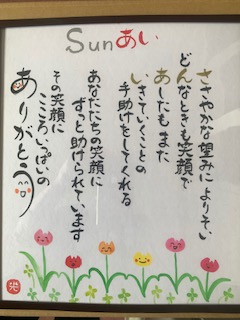 Sunあい
ささやかな望みによりそい
どんなときも笑顔で
あしたもまた
いきていくことの
手助けをしてくれる
あなたたちの笑顔に
ずっと助けられています
その笑顔に
こころいっぱいの
ありがとう